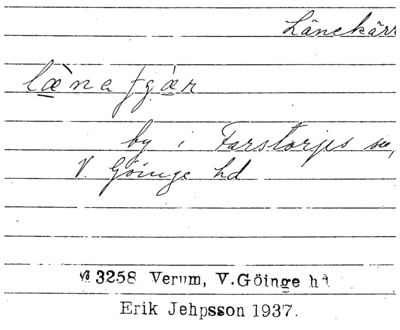 Länekärr
by i Farstorps sn,
V. Göinge hd
3258 Verum, V.Göinge hd
Erik Jehpsson 1937.